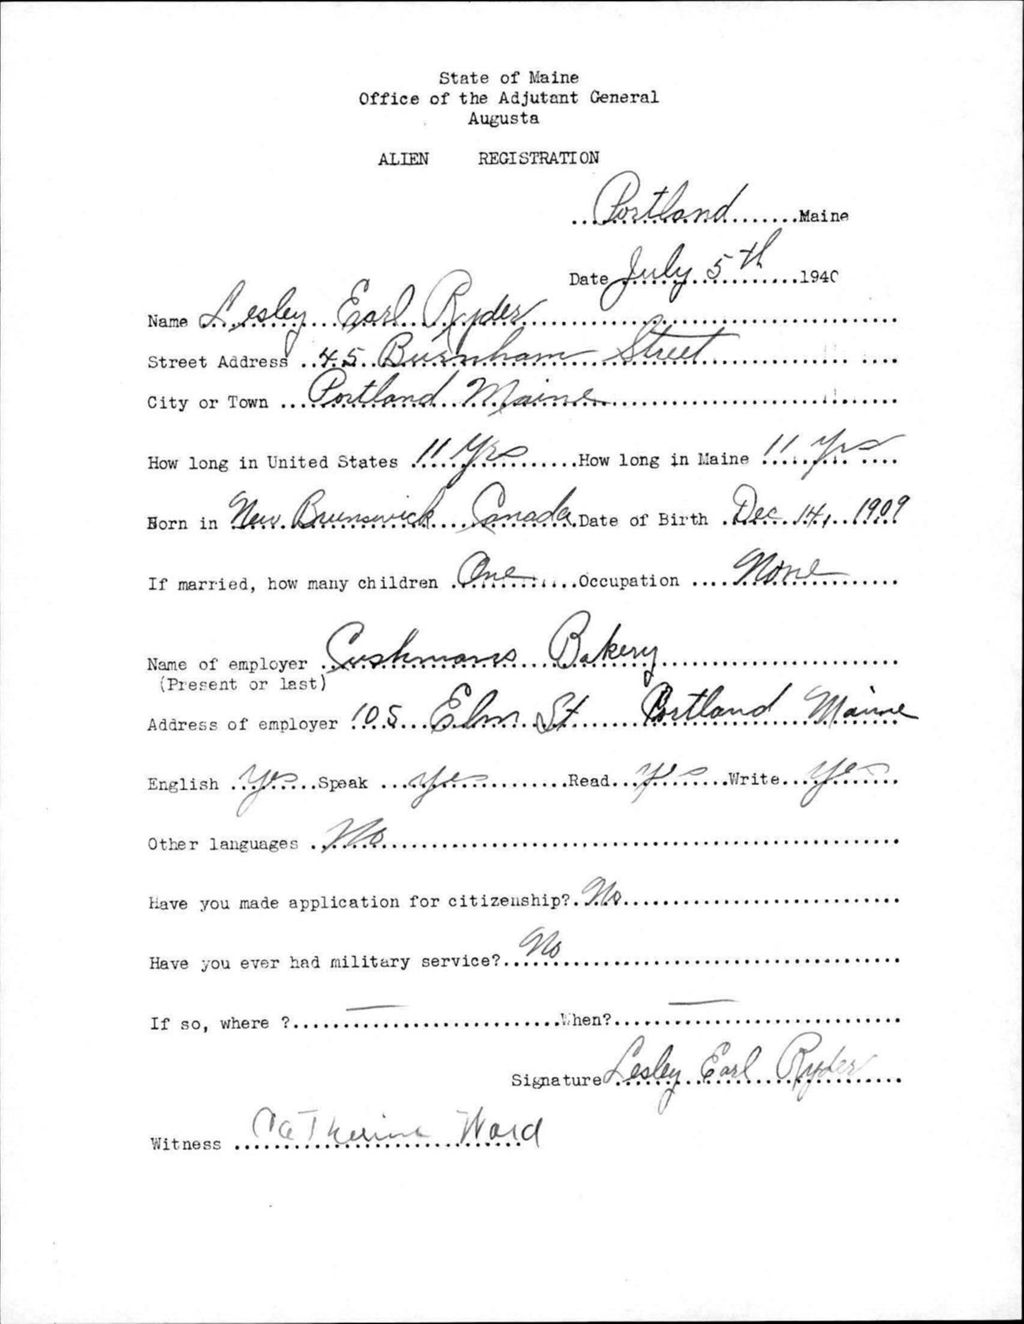 State of Maine
Office of the Adjutant General
Augusta
ALIEN REGISTRATION
Portland Maine
Date July 5th 1940
Name Lesley Earl Ryder
Street Address 45 Burnham Street
City or Town Portland Maine
How long in United States 11 Yrs How long in Maine 11 Yrs
Born in New Brunswick Canada Date of Birth Dec. 14, 1909
If married, how many children One Occupation None
Name of employer Cushmans Bakery
(Present or last)
Address of employer 105 Elm St Portland Maine
English Yes Speak Yes Read Yes Write Yes
Other languages No
Have you made application for citizenship? No
Have you ever had military service? No
If so, where ? — When? —
Signature Lesley Earl Ryder
Witness Catherine Ward